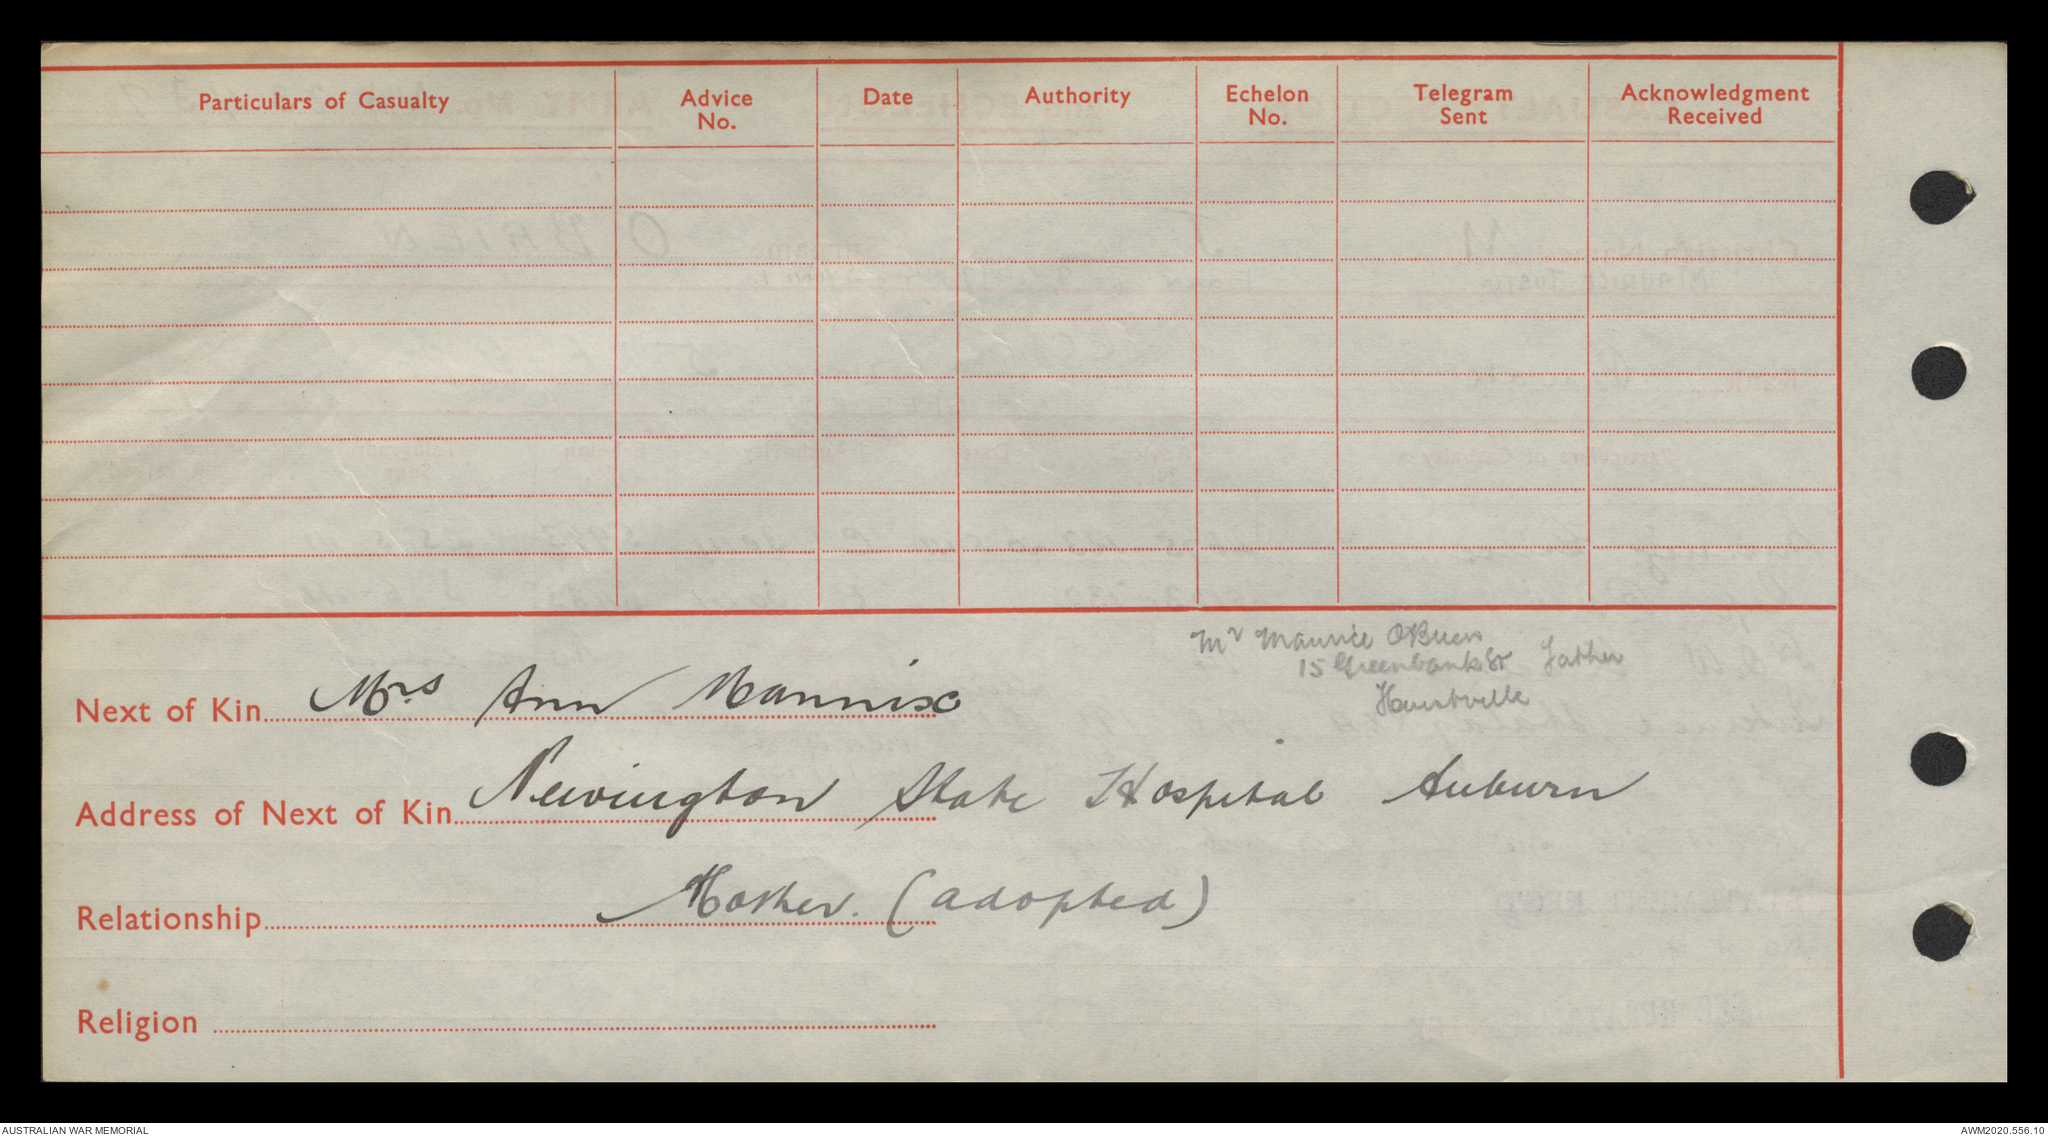 Particulars of Casualty Advice No. Date Authority Echelon No. Telegram Sent Acknowledgment Received
Mr Maurice OBrien
15 Greenbank St Father
Hurstville
Next of Kin Mrs Ann Mannix
Address of Next of Kin Newington State Hospital Auburn
Relationship Mother. (adopted)
Religion
AUSTRALIAN WAR MEMORIAL
AWM2020.556.10